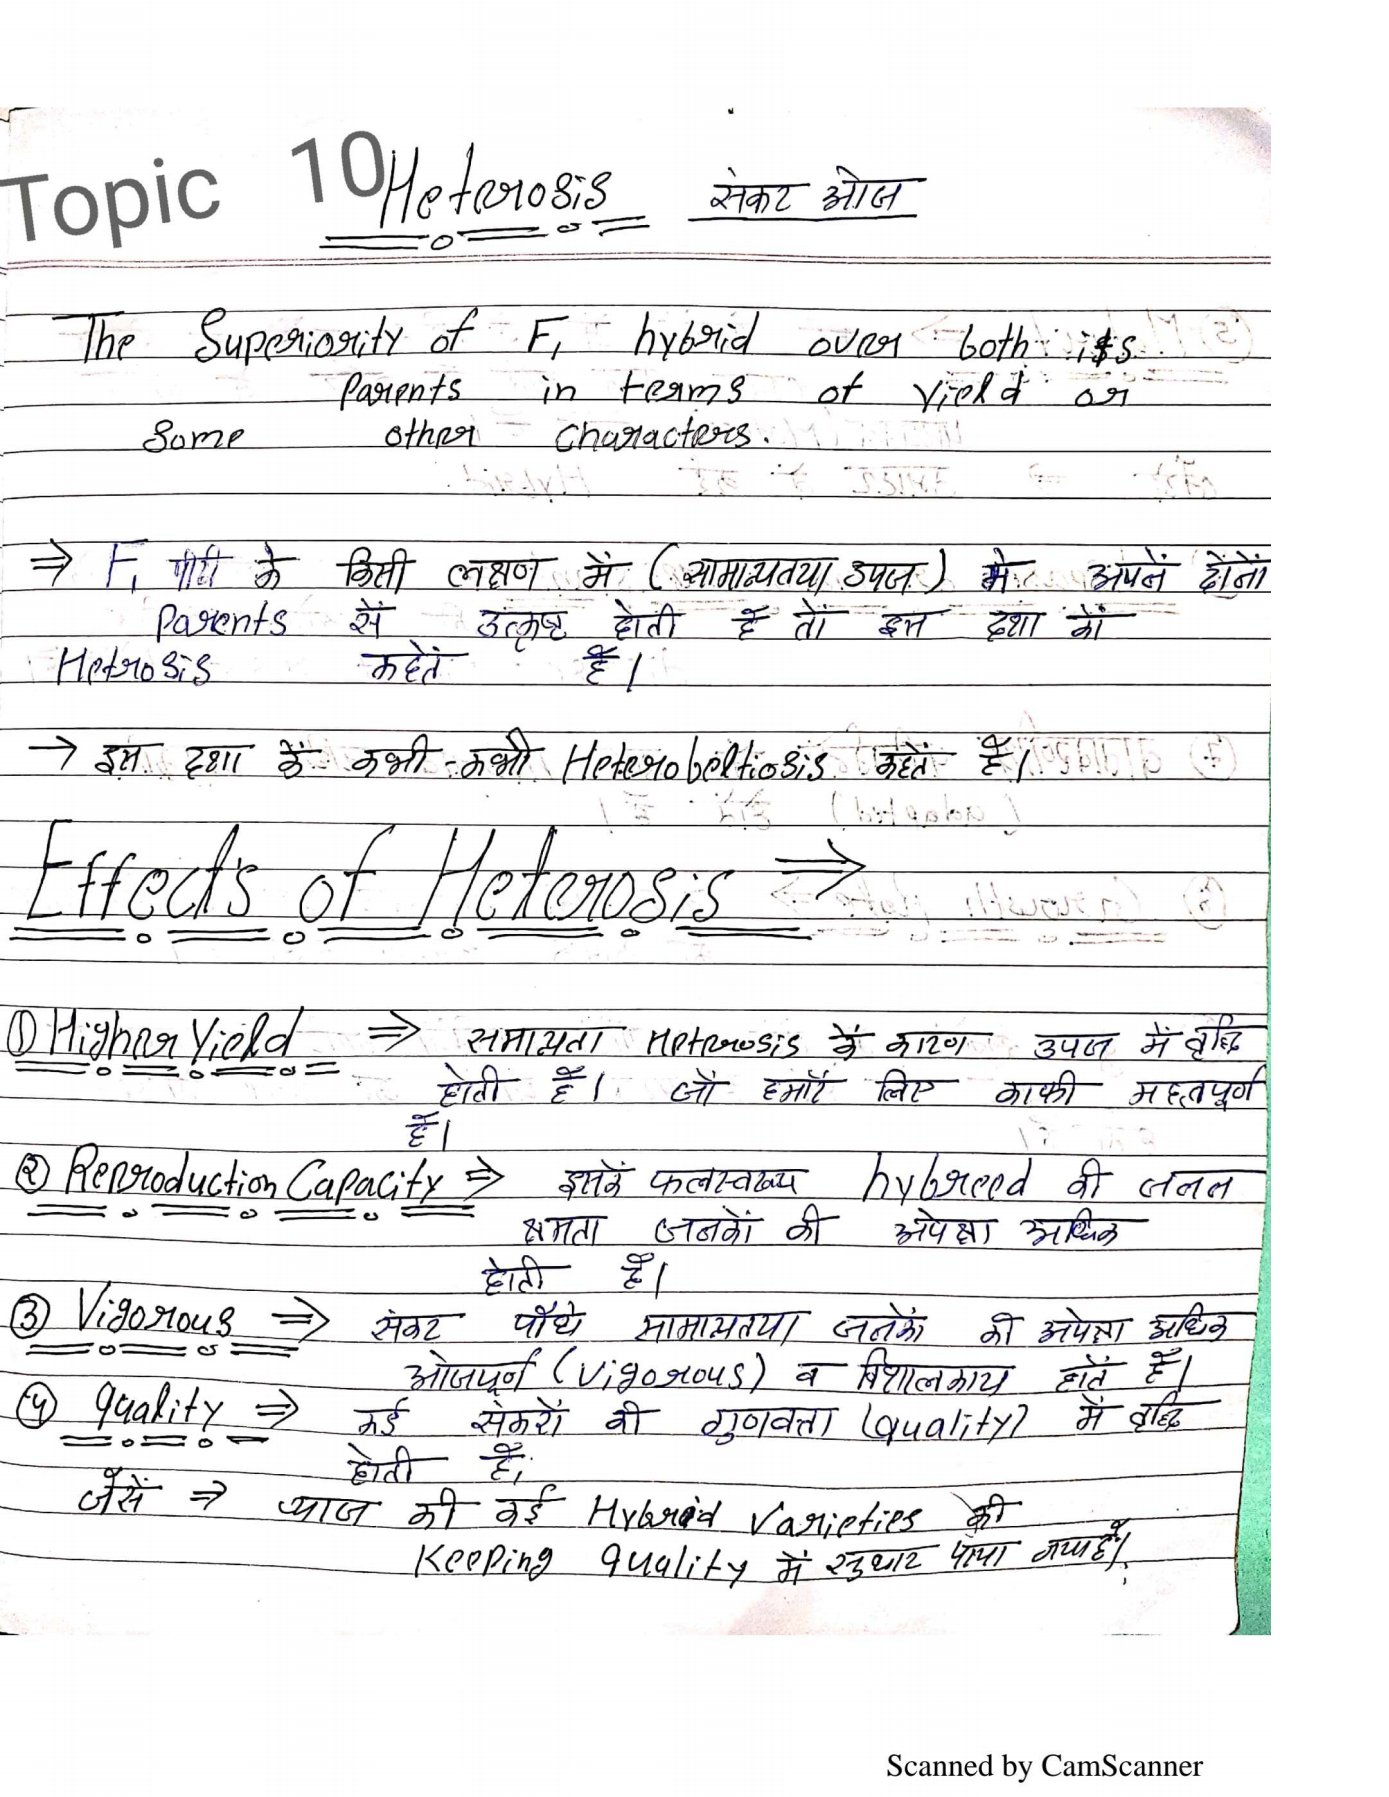 Topic 10 Heterosis संकट ओज
The Superiority of F₁ hybrid over both its
Parents in terms of Yield or
Some other characters.
⇒ F₁ पीढी के किसी लक्षण में (सामान्यतया उपज) मे अपनें दोंनों
Parents सें उत्कृष्ट होती हैं तों इस दशा कों
Hetrosis कहेतें हैं।
→ इस दशा कें कभी-कभी Heterobeltiosis कहतें हैं।
Effects of Heterosis ⇒
① Higher Yield ⇒ समान्यता Heterosis कें कारण उपज में वृद्धि
होती हैं। जो हमारें लिए काफी महत्वपूर्ण
हैं।
② Reproduction Capacity ⇒ इसकें फलस्वरूप hybreed की जनन
क्षमता जनकों की अपेक्षा अधिक
होती हैं।
③ Vigorous ⇒ संकर पौंधे सामान्यतया जनकों की अपेक्षा अधिक
ओजपूर्ण (Vigorous) व विशालकाय होतें हैं।
④ quality ⇒ कई संकरों की गुणवत्ता (quality) में वृद्धि
होती हैं,
जैंसें ⇒ प्याज की कई Hybrid Varieties की
Keeping quality में सुधार पाया गया हैं।
Scanned by CamScanner